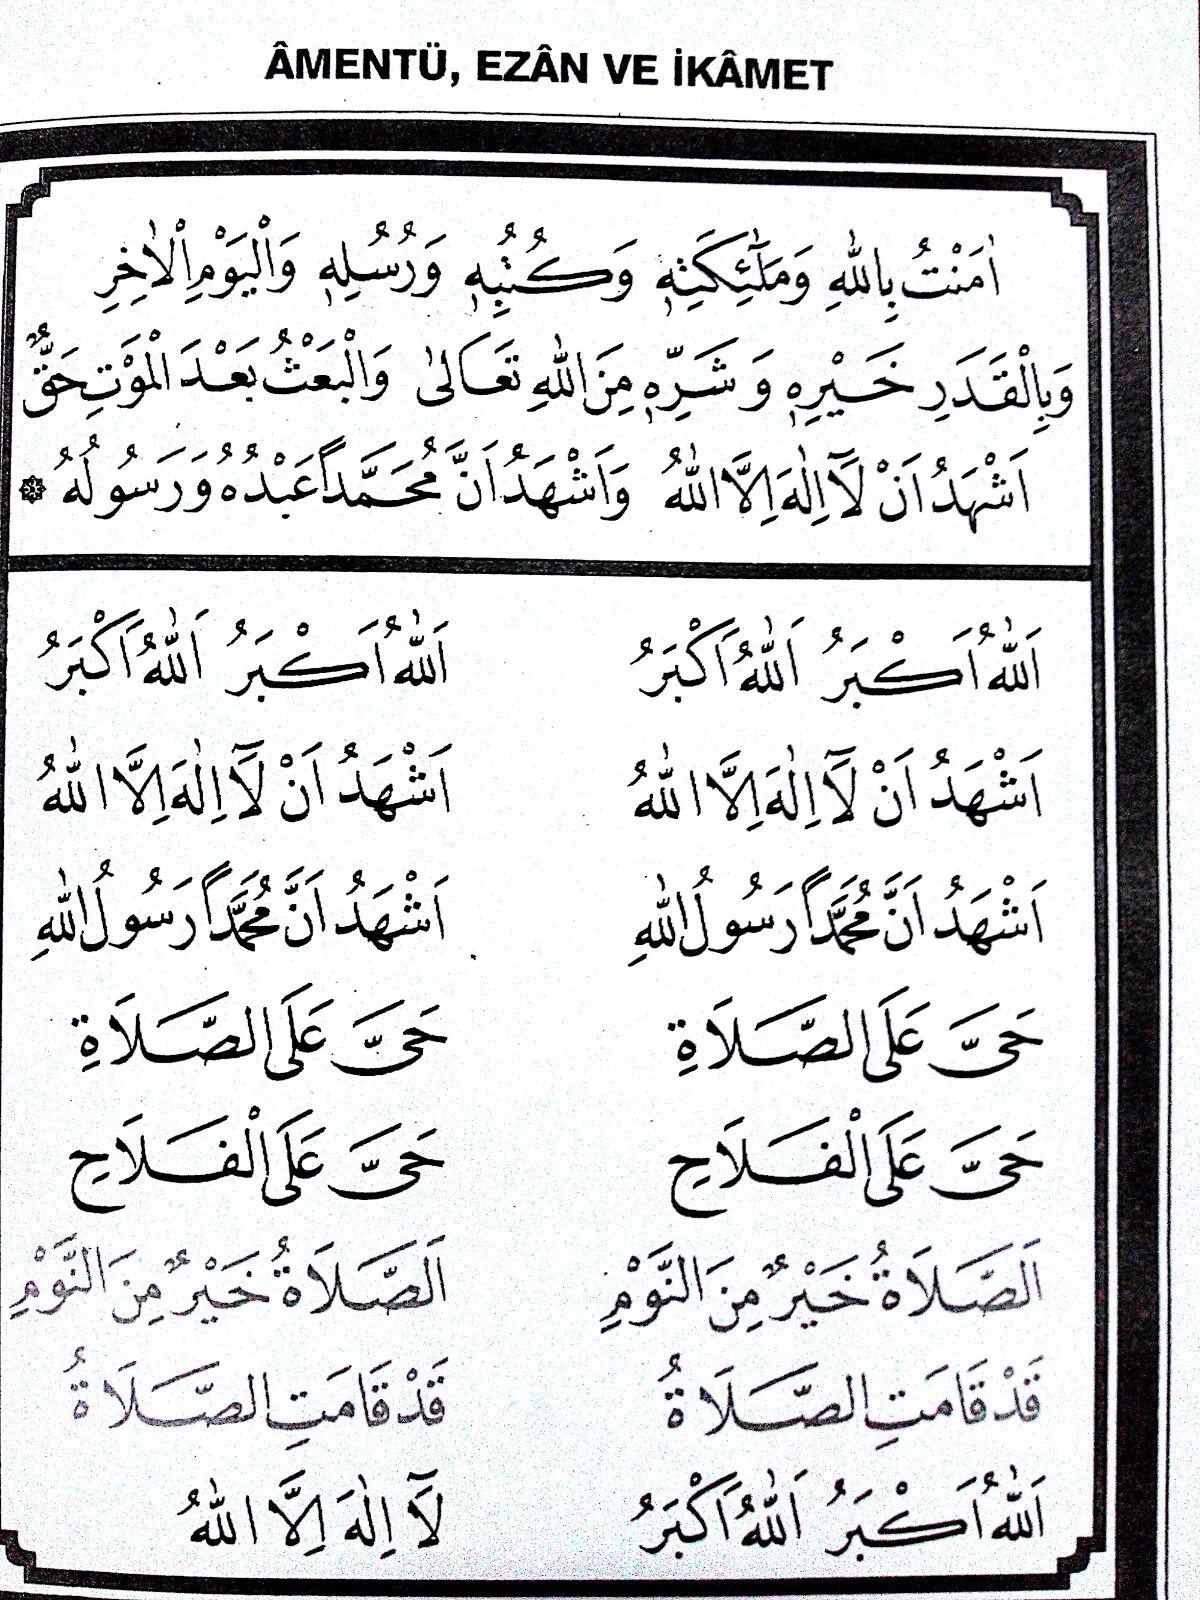 ÂMENTÜ, EZÂN VE İKÂMET
اٰمَنْتُ بِاللّٰهِ وَمَلٰٓئِكَتِهٖ وَكُتُبِهٖ وَرُسُلِهٖ وَالْيَوْمِ الْاٰخِرِ
وَبِالْقَدَرِ خَيْرِهٖ وَشَرِّهٖ مِنَ اللّٰهِ تَعَالٰى وَالْبَعْثُ بَعْدَ الْمَوْتِ حَقٌّ
اَشْهَدُ اَنْ لَٓا اِلٰهَ اِلَّا اللّٰهُ وَاَشْهَدُ اَنَّ مُحَمَّدًا عَبْدُهُ وَرَسُولُهُ
اَللّٰهُ اَكْبَرُ اَللّٰهُ اَكْبَرُ اَللّٰهُ اَكْبَرُ اَللّٰهُ اَكْبَرُ
اَشْهَدُ اَنْ لَٓا اِلٰهَ اِلَّا اللّٰهُ اَشْهَدُ اَنْ لَٓا اِلٰهَ اِلَّا اللّٰهُ
اَشْهَدُ اَنَّ مُحَمَّدًا رَسُولُ اللّٰهِ اَشْهَدُ اَنَّ مُحَمَّدًا رَسُولُ اللّٰهِ
حَىَّ عَلَى الصَّلَاةِ حَىَّ عَلَى الصَّلَاةِ
حَىَّ عَلَى الْفَلَاحِ حَىَّ عَلَى الْفَلَاحِ
اَلصَّلَاةُ خَيْرٌ مِنَ النَّوْمِ اَلصَّلَاةُ خَيْرٌ مِنَ النَّوْمِ
قَدْ قَامَتِ الصَّلَاةُ قَدْ قَامَتِ الصَّلَاةُ
اَللّٰهُ اَكْبَرُ اَللّٰهُ اَكْبَرُ لَٓا اِلٰهَ اِلَّا اللّٰهُ